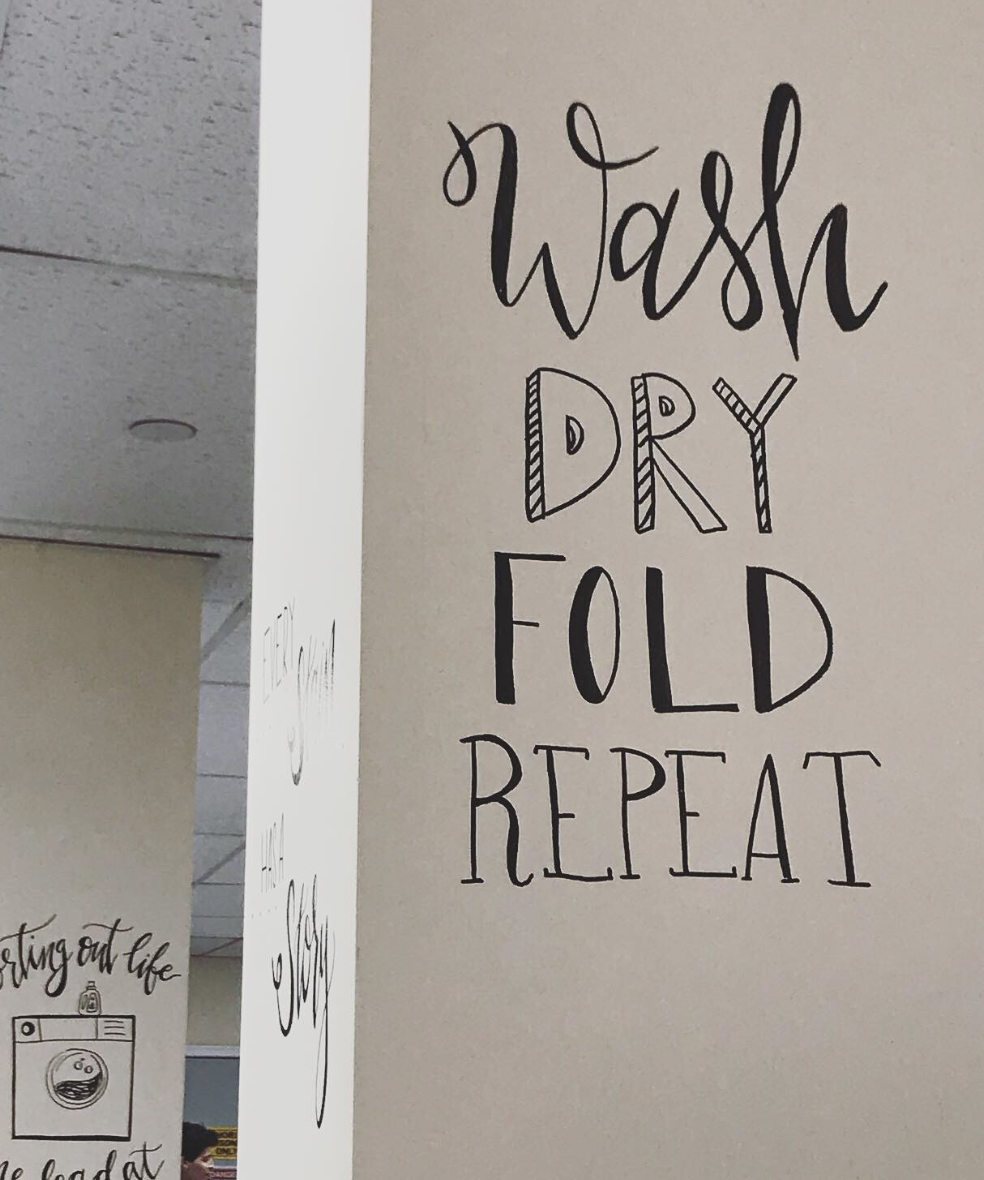 Wash
DRY
FOLD
REPEAT
EVERY
Stain
HAS A
Story
orting out life
load at